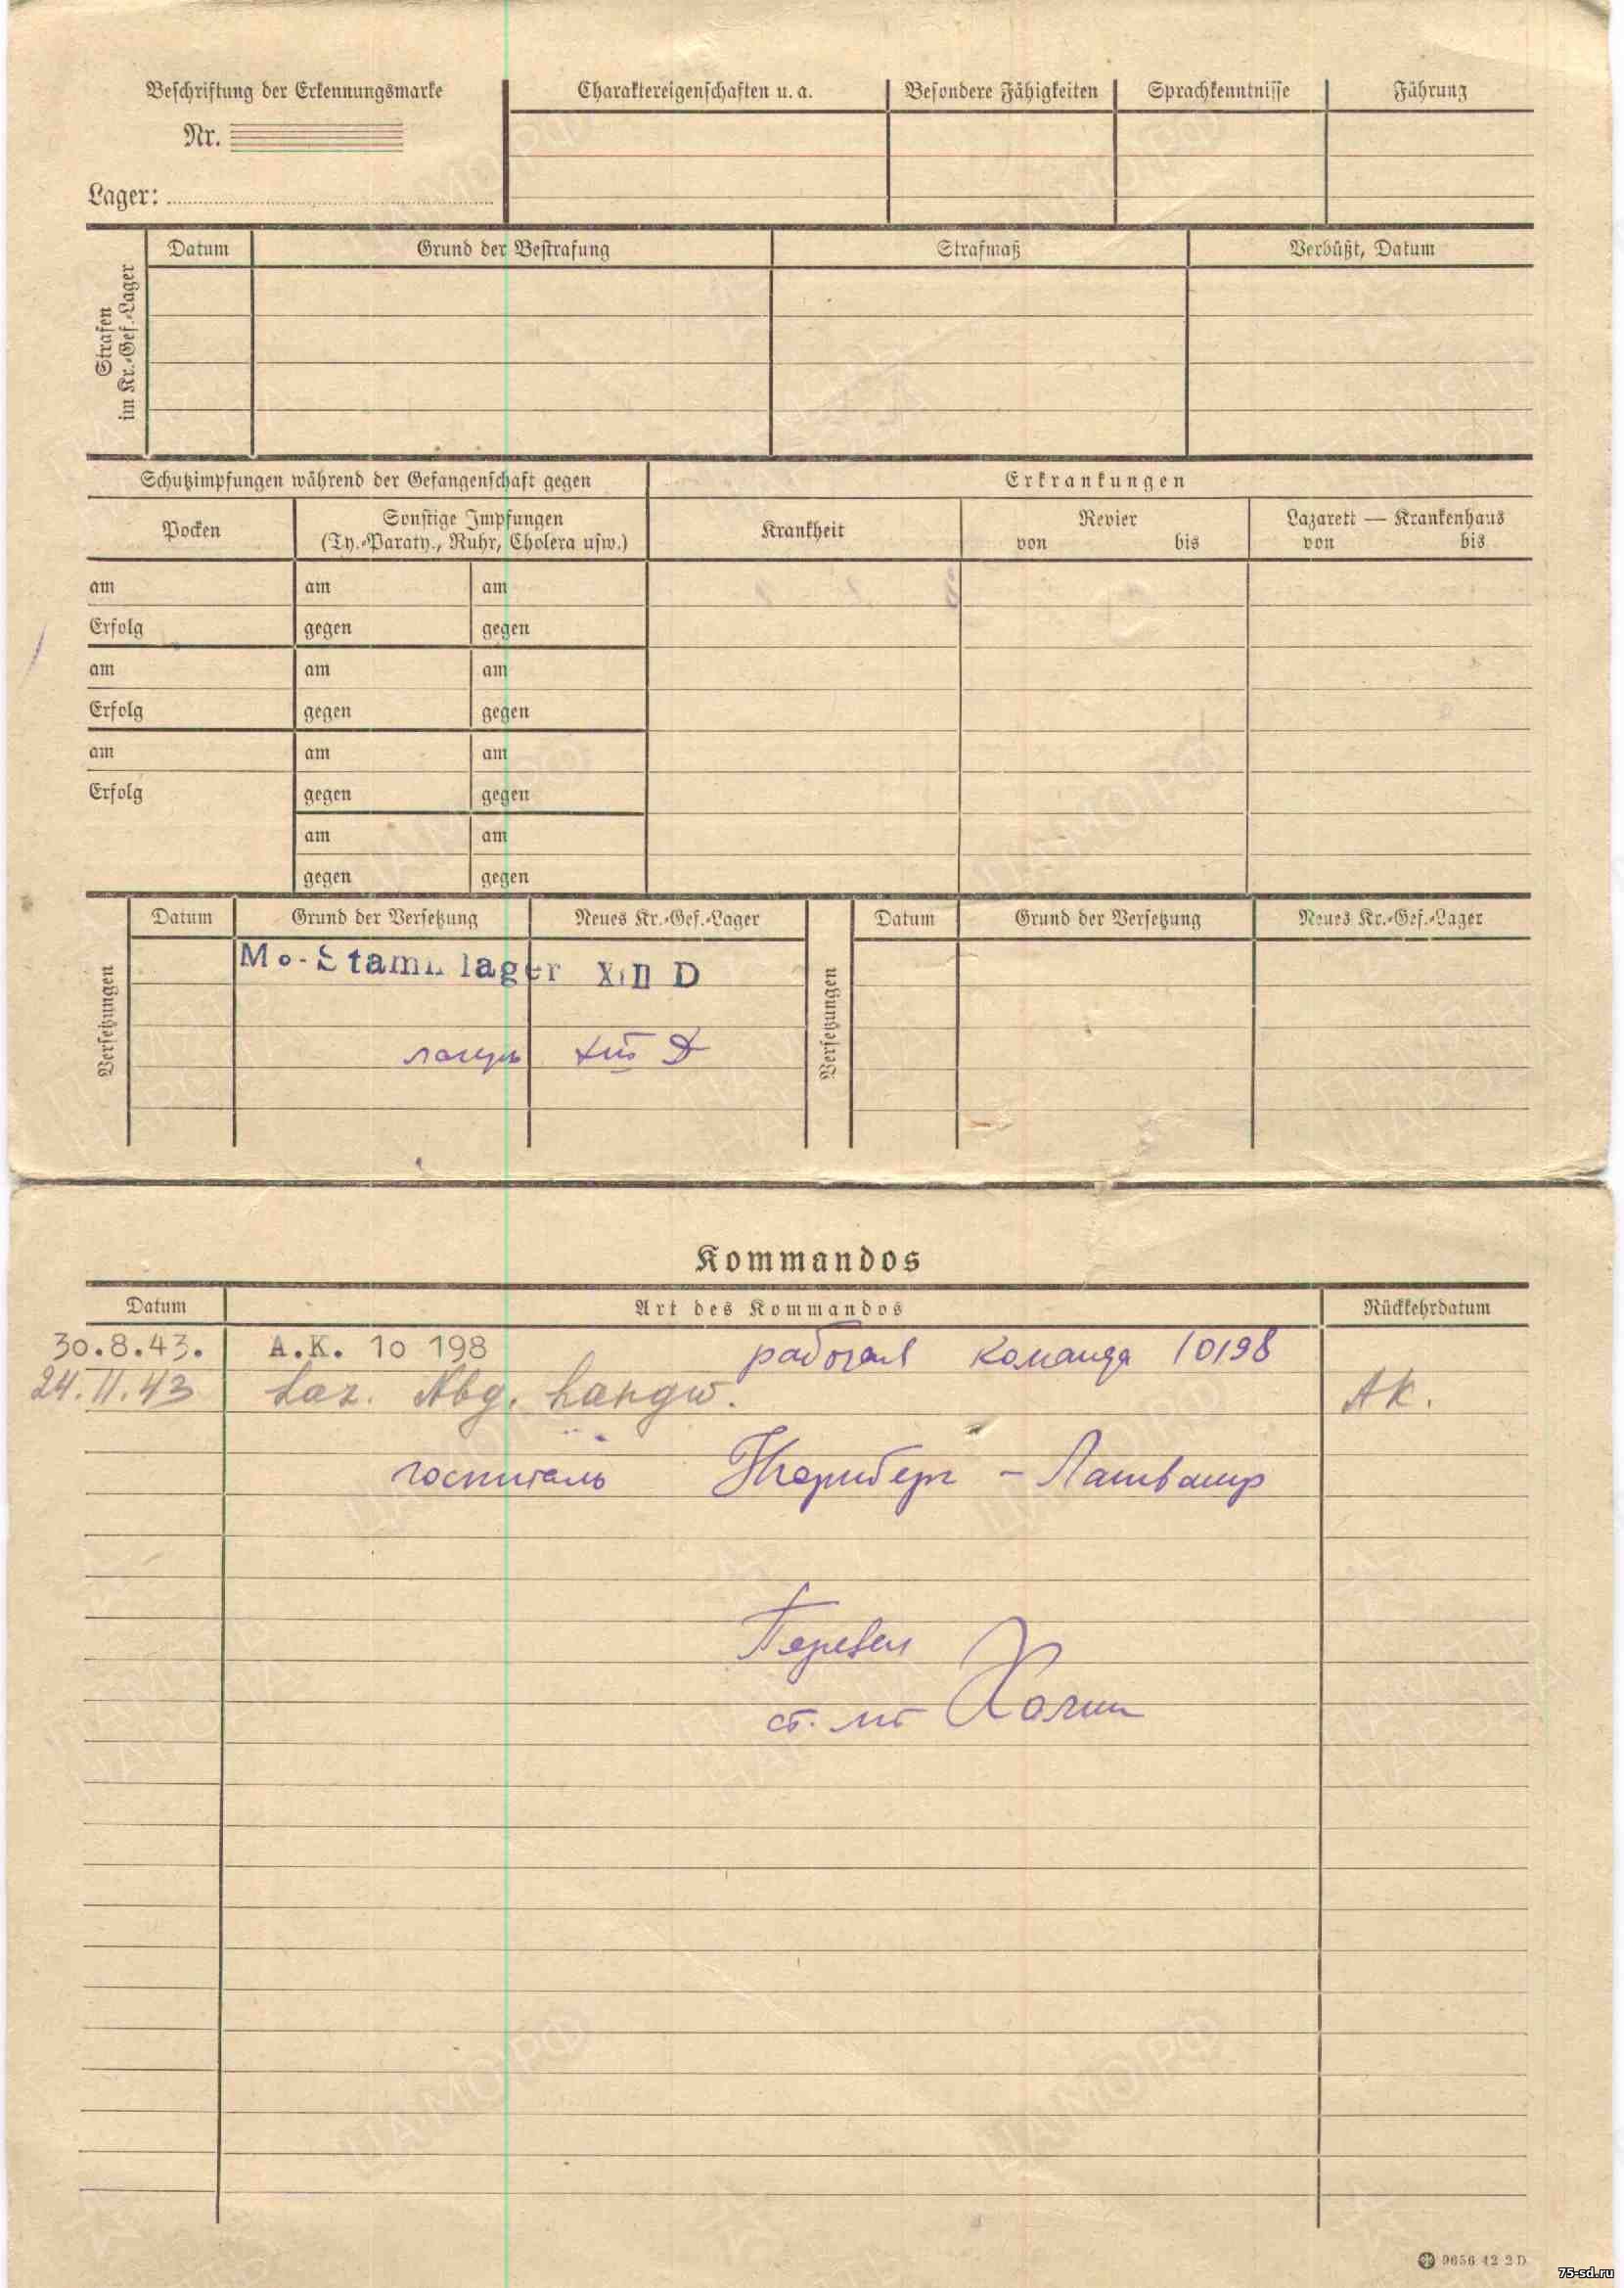 Beschriftung der Erkennungsmarke
Nr.
Lager:
Charaktereigenschaften u. a.
Besondere Fähigkeiten
Sprachkenntnisse
Führung
Strafen
im Kr.-Gef.-Lager
Datum
Grund der Bestrafung
Strafmaß
Verbüßt, Datum
Schutzimpfungen während der Gefangenschaft gegen
Erkrankungen
Pocken
Sonstige Impfungen
(Ty.-Paraty., Ruhr, Cholera usw.)
Krankheit
Revier
von bis
Lazarett — Krankenhaus
von bis
am am am
Erfolg gegen gegen
am am am
Erfolg gegen gegen
am am am
Erfolg gegen gegen
am am
gegen gegen
Versetzungen
Datum
Grund der Versetzung
Neues Kr.-Gef.-Lager
Versetzungen
Datum
Grund der Versetzung
Neues Kr.-Gef.-Lager
M.-Stammlager XIII D
лагерь XIII D
Kommandos
Datum
Art des Kommandos
Rückkehrdatum
30.8.43. A.K. 10 198 рабочая команда 10198
24.11.43 Laz. Nbg. Langw. AK.
госпиталь Нюрнберг - Лангвассер
Перевел
ст. лт
9656 42 2 D
75-sd.ru
ЦАМО РФ